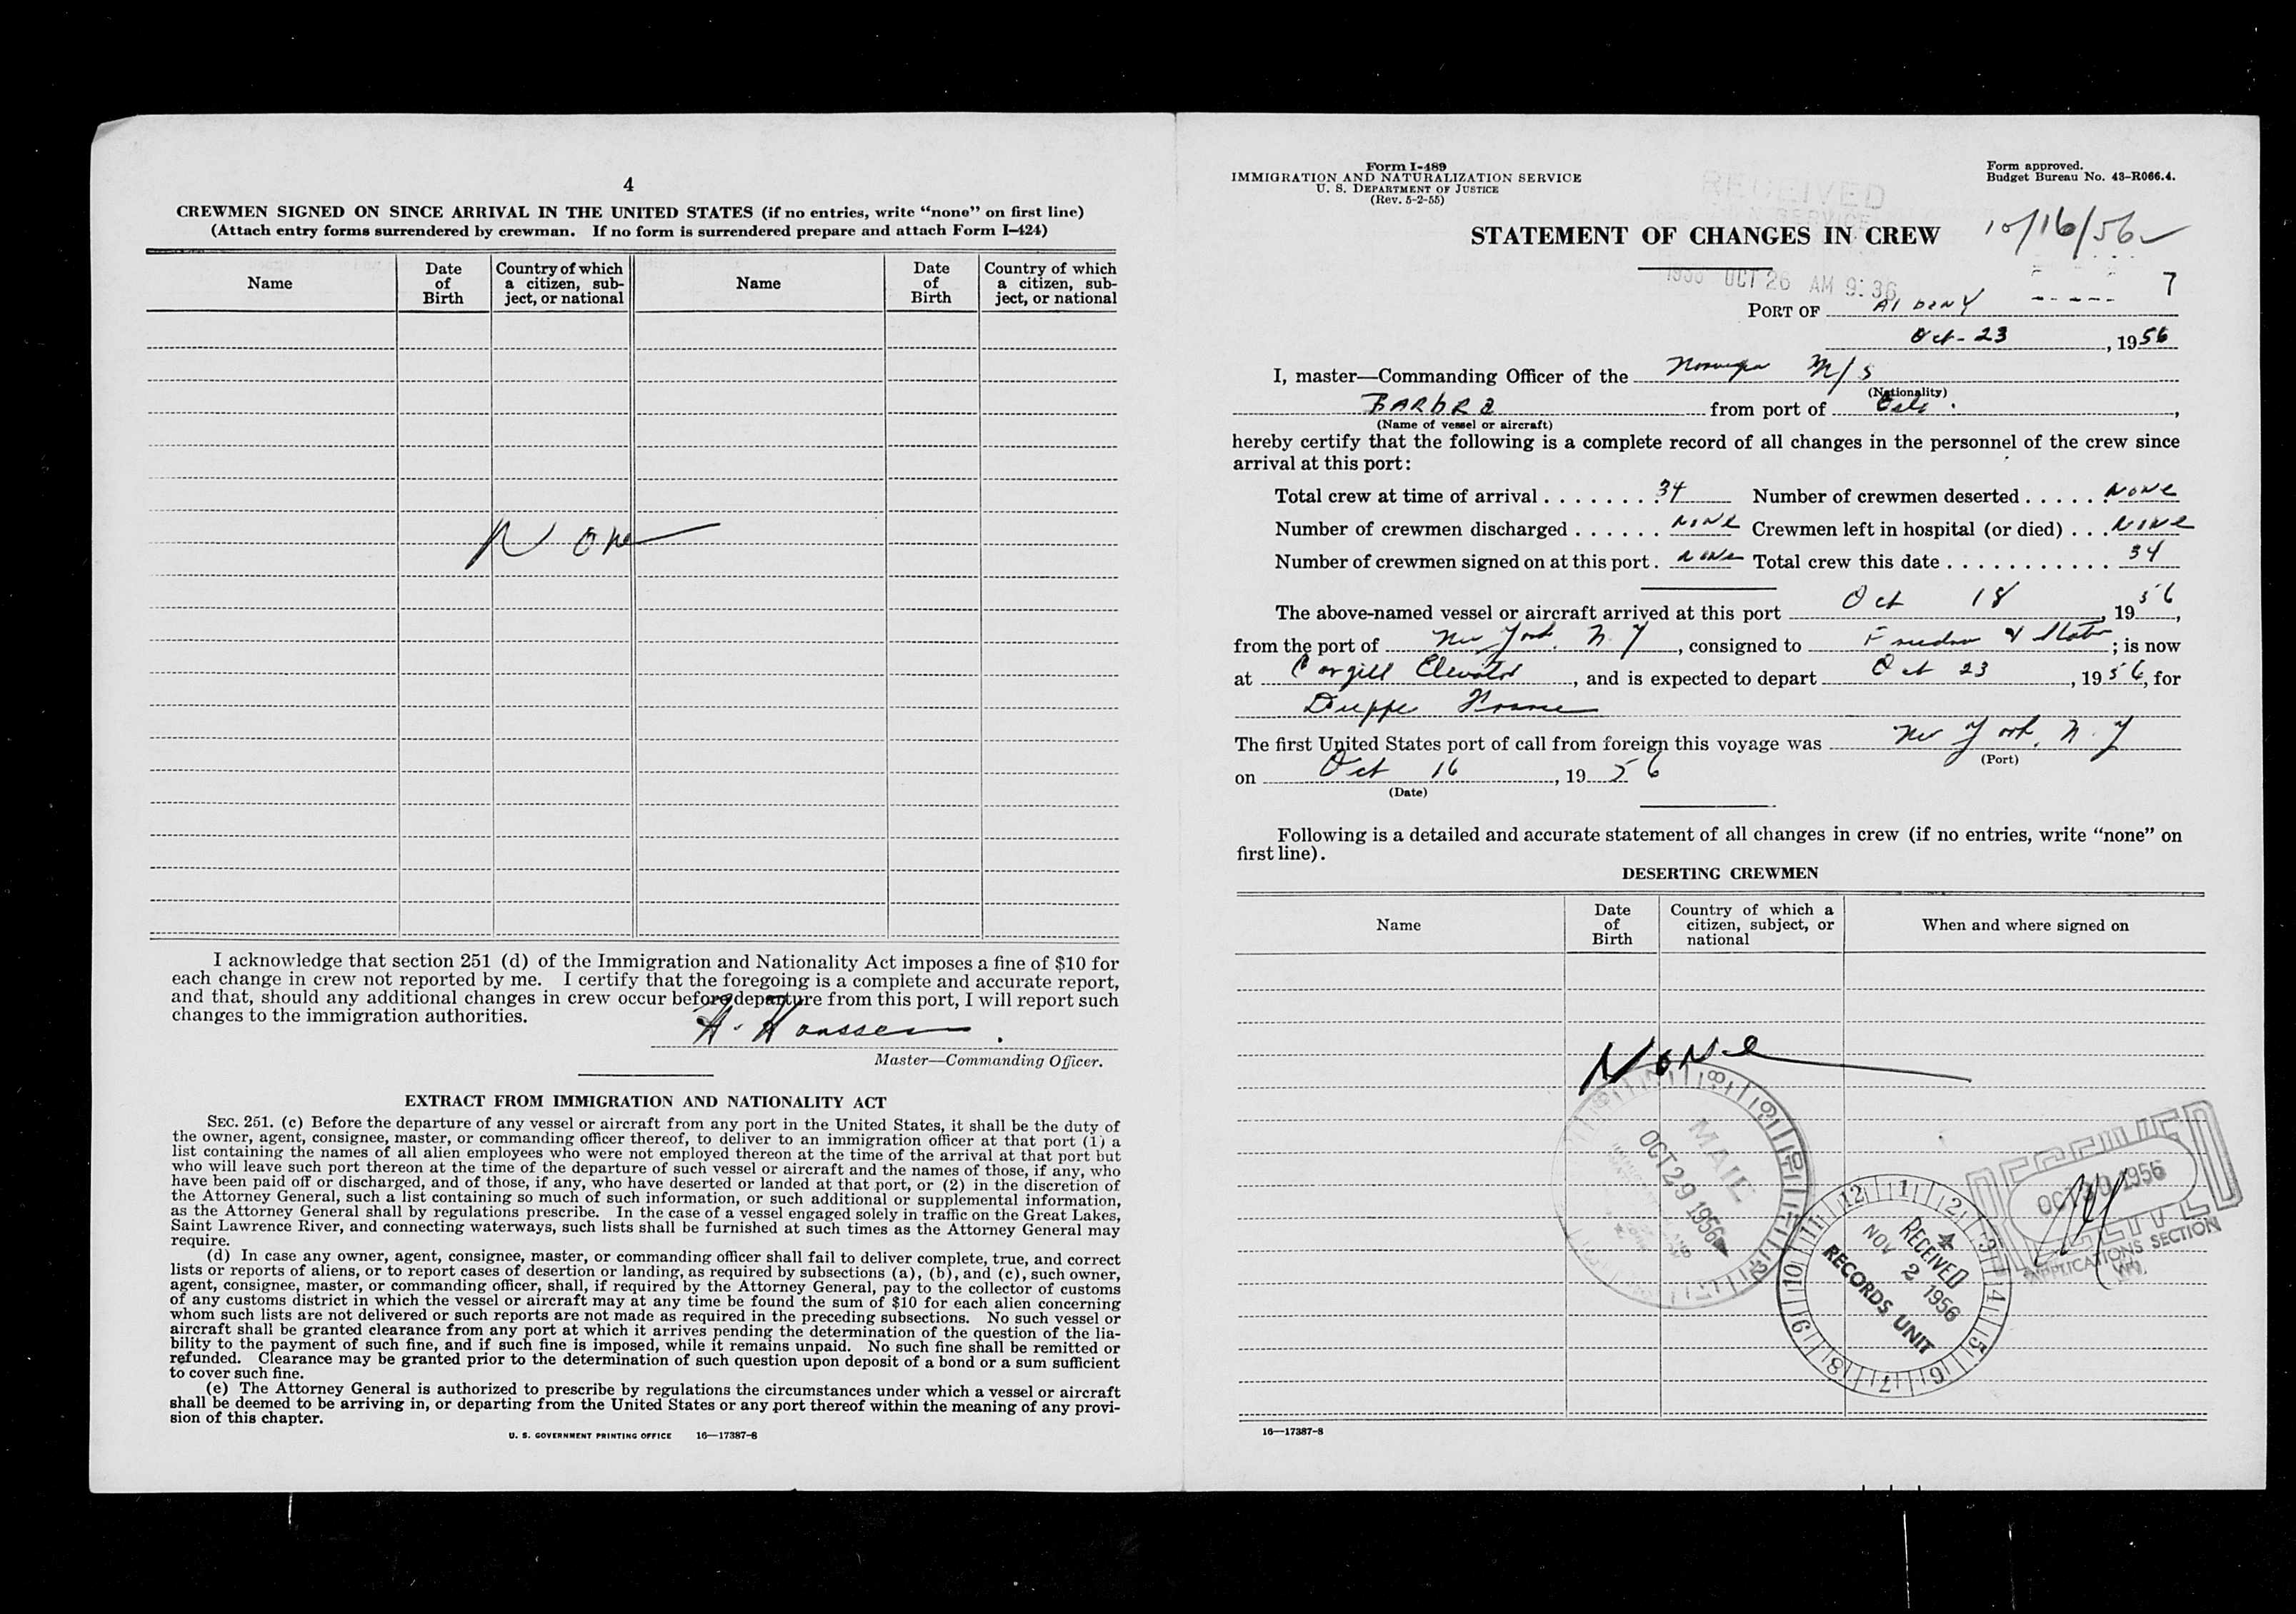 4
CREWMEN SIGNED ON SINCE ARRIVAL IN THE UNITED STATES (if no entries, write “none” on first line)
(Attach entry forms surrendered by crewman. If no form is surrendered prepare and attach Form I-424)
Name
Date of Birth
Country of which a citizen, subject, or national
Name
Date of Birth
Country of which a citizen, subject, or national
None
I acknowledge that section 251 (d) of the Immigration and Nationality Act imposes a fine of $10 for
each change in crew not reported by me. I certify that the foregoing is a complete and accurate report,
and that, should any additional changes in crew occur before departure from this port, I will report such
changes to the immigration authorities.
Master—Commanding Officer.
EXTRACT FROM IMMIGRATION AND NATIONALITY ACT
SEC. 251. (c) Before the departure of any vessel or aircraft from any port in the United States, it shall be the duty of
the owner, agent, consignee, master, or commanding officer thereof, to deliver to an immigration officer at that port (1) a
list containing the names of all alien employees who were not employed thereon at the time of the arrival at that port but
who will leave such port thereon at the time of the departure of such vessel or aircraft and the names of those, if any, who
have been paid off or discharged, and of those, if any, who have deserted or landed at that port, or (2) in the discretion of
the Attorney General, such a list containing so much of such information, or such additional or supplemental information,
as the Attorney General shall by regulations prescribe. In the case of a vessel engaged solely in traffic on the Great Lakes,
Saint Lawrence River, and connecting waterways, such lists shall be furnished at such times as the Attorney General may
require.
(d) In case any owner, agent, consignee, master, or commanding officer shall fail to deliver complete, true, and correct
lists or reports of aliens, or to report cases of desertion or landing, as required by subsections (a), (b), and (c), such owner,
agent, consignee, master, or commanding officer, shall, if required by the Attorney General, pay to the collector of customs
of any customs district in which the vessel or aircraft may at any time be found the sum of $10 for each alien concerning
whom such lists are not delivered or such reports are not made as required in the preceding subsections. No such vessel or
aircraft shall be granted clearance from any port at which it arrives pending the determination of the question of the lia-
bility to the payment of such fine, and if such fine is imposed, while it remains unpaid. No such fine shall be remitted or
refunded. Clearance may be granted prior to the determination of such question upon deposit of a bond or a sum sufficient
to cover such fine.
(e) The Attorney General is authorized to prescribe by regulations the circumstances under which a vessel or aircraft
shall be deemed to be arriving in, or departing from the United States or any port thereof within the meaning of any provi-
sion of this chapter.
U. S. GOVERNMENT PRINTING OFFICE 16—17387-8
Form I-489
IMMIGRATION AND NATURALIZATION SERVICE
U. S. DEPARTMENT OF JUSTICE
(Rev. 5-2-55)
Form approved.
Budget Bureau No. 43-R066.4.
RECEIVED
SERVICE
STATEMENT OF CHANGES IN CREW
10/16/56
1956 OCT 26 AM 9:36
7
PORT OF Albany
Oct-23, 1956
I, master—Commanding Officer of the M/S
(Nationality)
BARbRO from port of Oslo.,
(Name of vessel or aircraft)
hereby certify that the following is a complete record of all changes in the personnel of the crew since
arrival at this port:
Total crew at time of arrival 34 Number of crewmen deserted None
Number of crewmen discharged None Crewmen left in hospital (or died) None
Number of crewmen signed on at this port None Total crew this date 34
The above-named vessel or aircraft arrived at this port Oct 18, 1956,
from the port of New York, N.Y, consigned to ; is now
at Cargill Elevator, and is expected to depart Oct 23, 1956, for
Dieppe France
The first United States port of call from foreign this voyage was New York, N.Y
(Port)
on Oct 16, 1956
(Date)
Following is a detailed and accurate statement of all changes in crew (if no entries, write “none” on
first line).
DESERTING CREWMEN
Name
Date of Birth
Country of which a citizen, subject, or national
When and where signed on
None
MAIL
OCT 29 1956
RECEIVED
OCT 30 1956
APPLICATIONS SECTION
12 1 2 3 4 5 6 7 8 9 10 11
RECEIVED
NOV 2 1956
RECORDS UNIT
16—17387-8